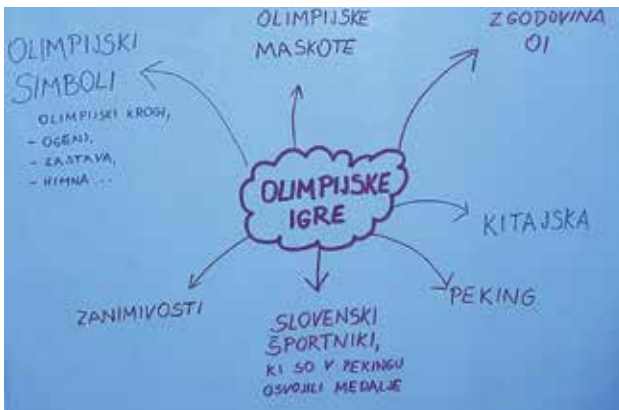 OLIMPIJSKI
SIMBOLI
OLIMPIJSKI KROGI,
- OGENJ,
- ZASTAVA,
- HIMNA ...
OLIMPIJSKE
MASKOTE
ZGODOVINA
OI
OLIMPIJSKE
IGRE
KITAJSKA
PEKING
SLOVENSKI
ŠPORTNIKI,
KI SO V PEKINGU
OSVOJILI MEDALJE
ZANIMIVOSTI